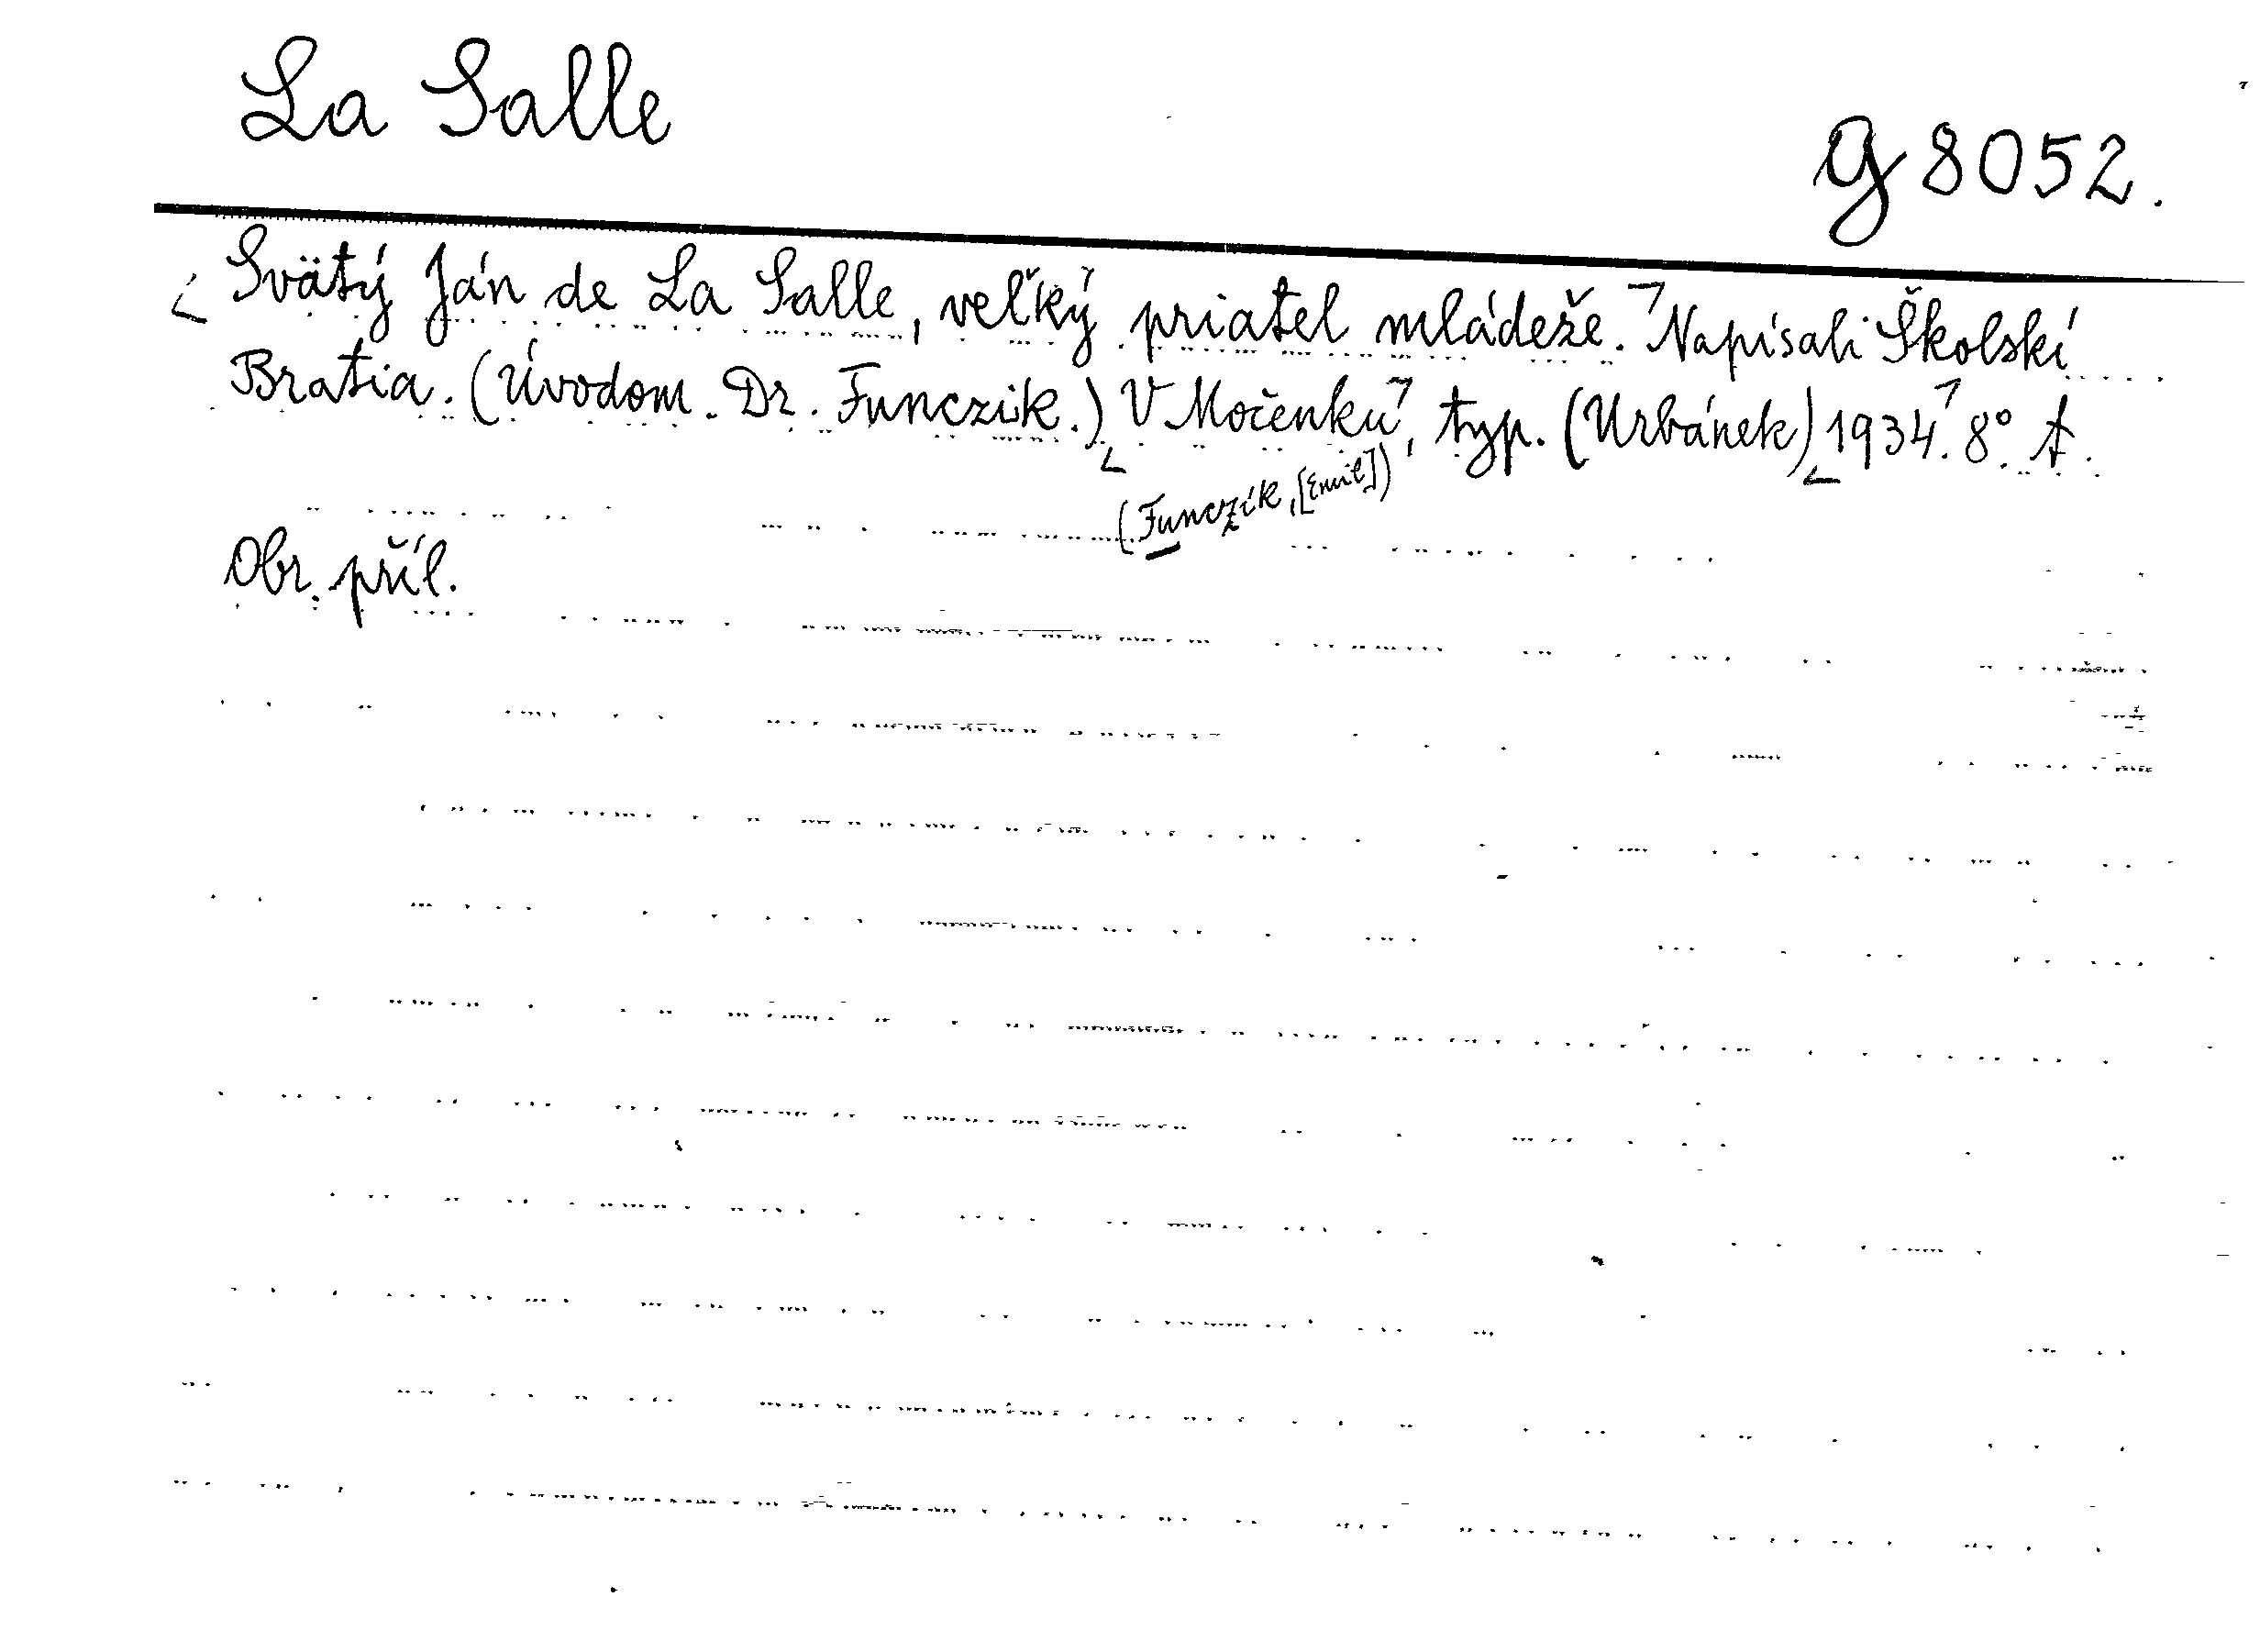 La Salle
g 8052.
Svätý Ján de La Salle, veľký priatel mládeže. Napísali Školskí
Bratia. (Úvodom Dr. Funczik.) V Močenku, typ. (Urbánek) 1934. 8°. A.
(Funczík, [Emil])
Obr. příl.